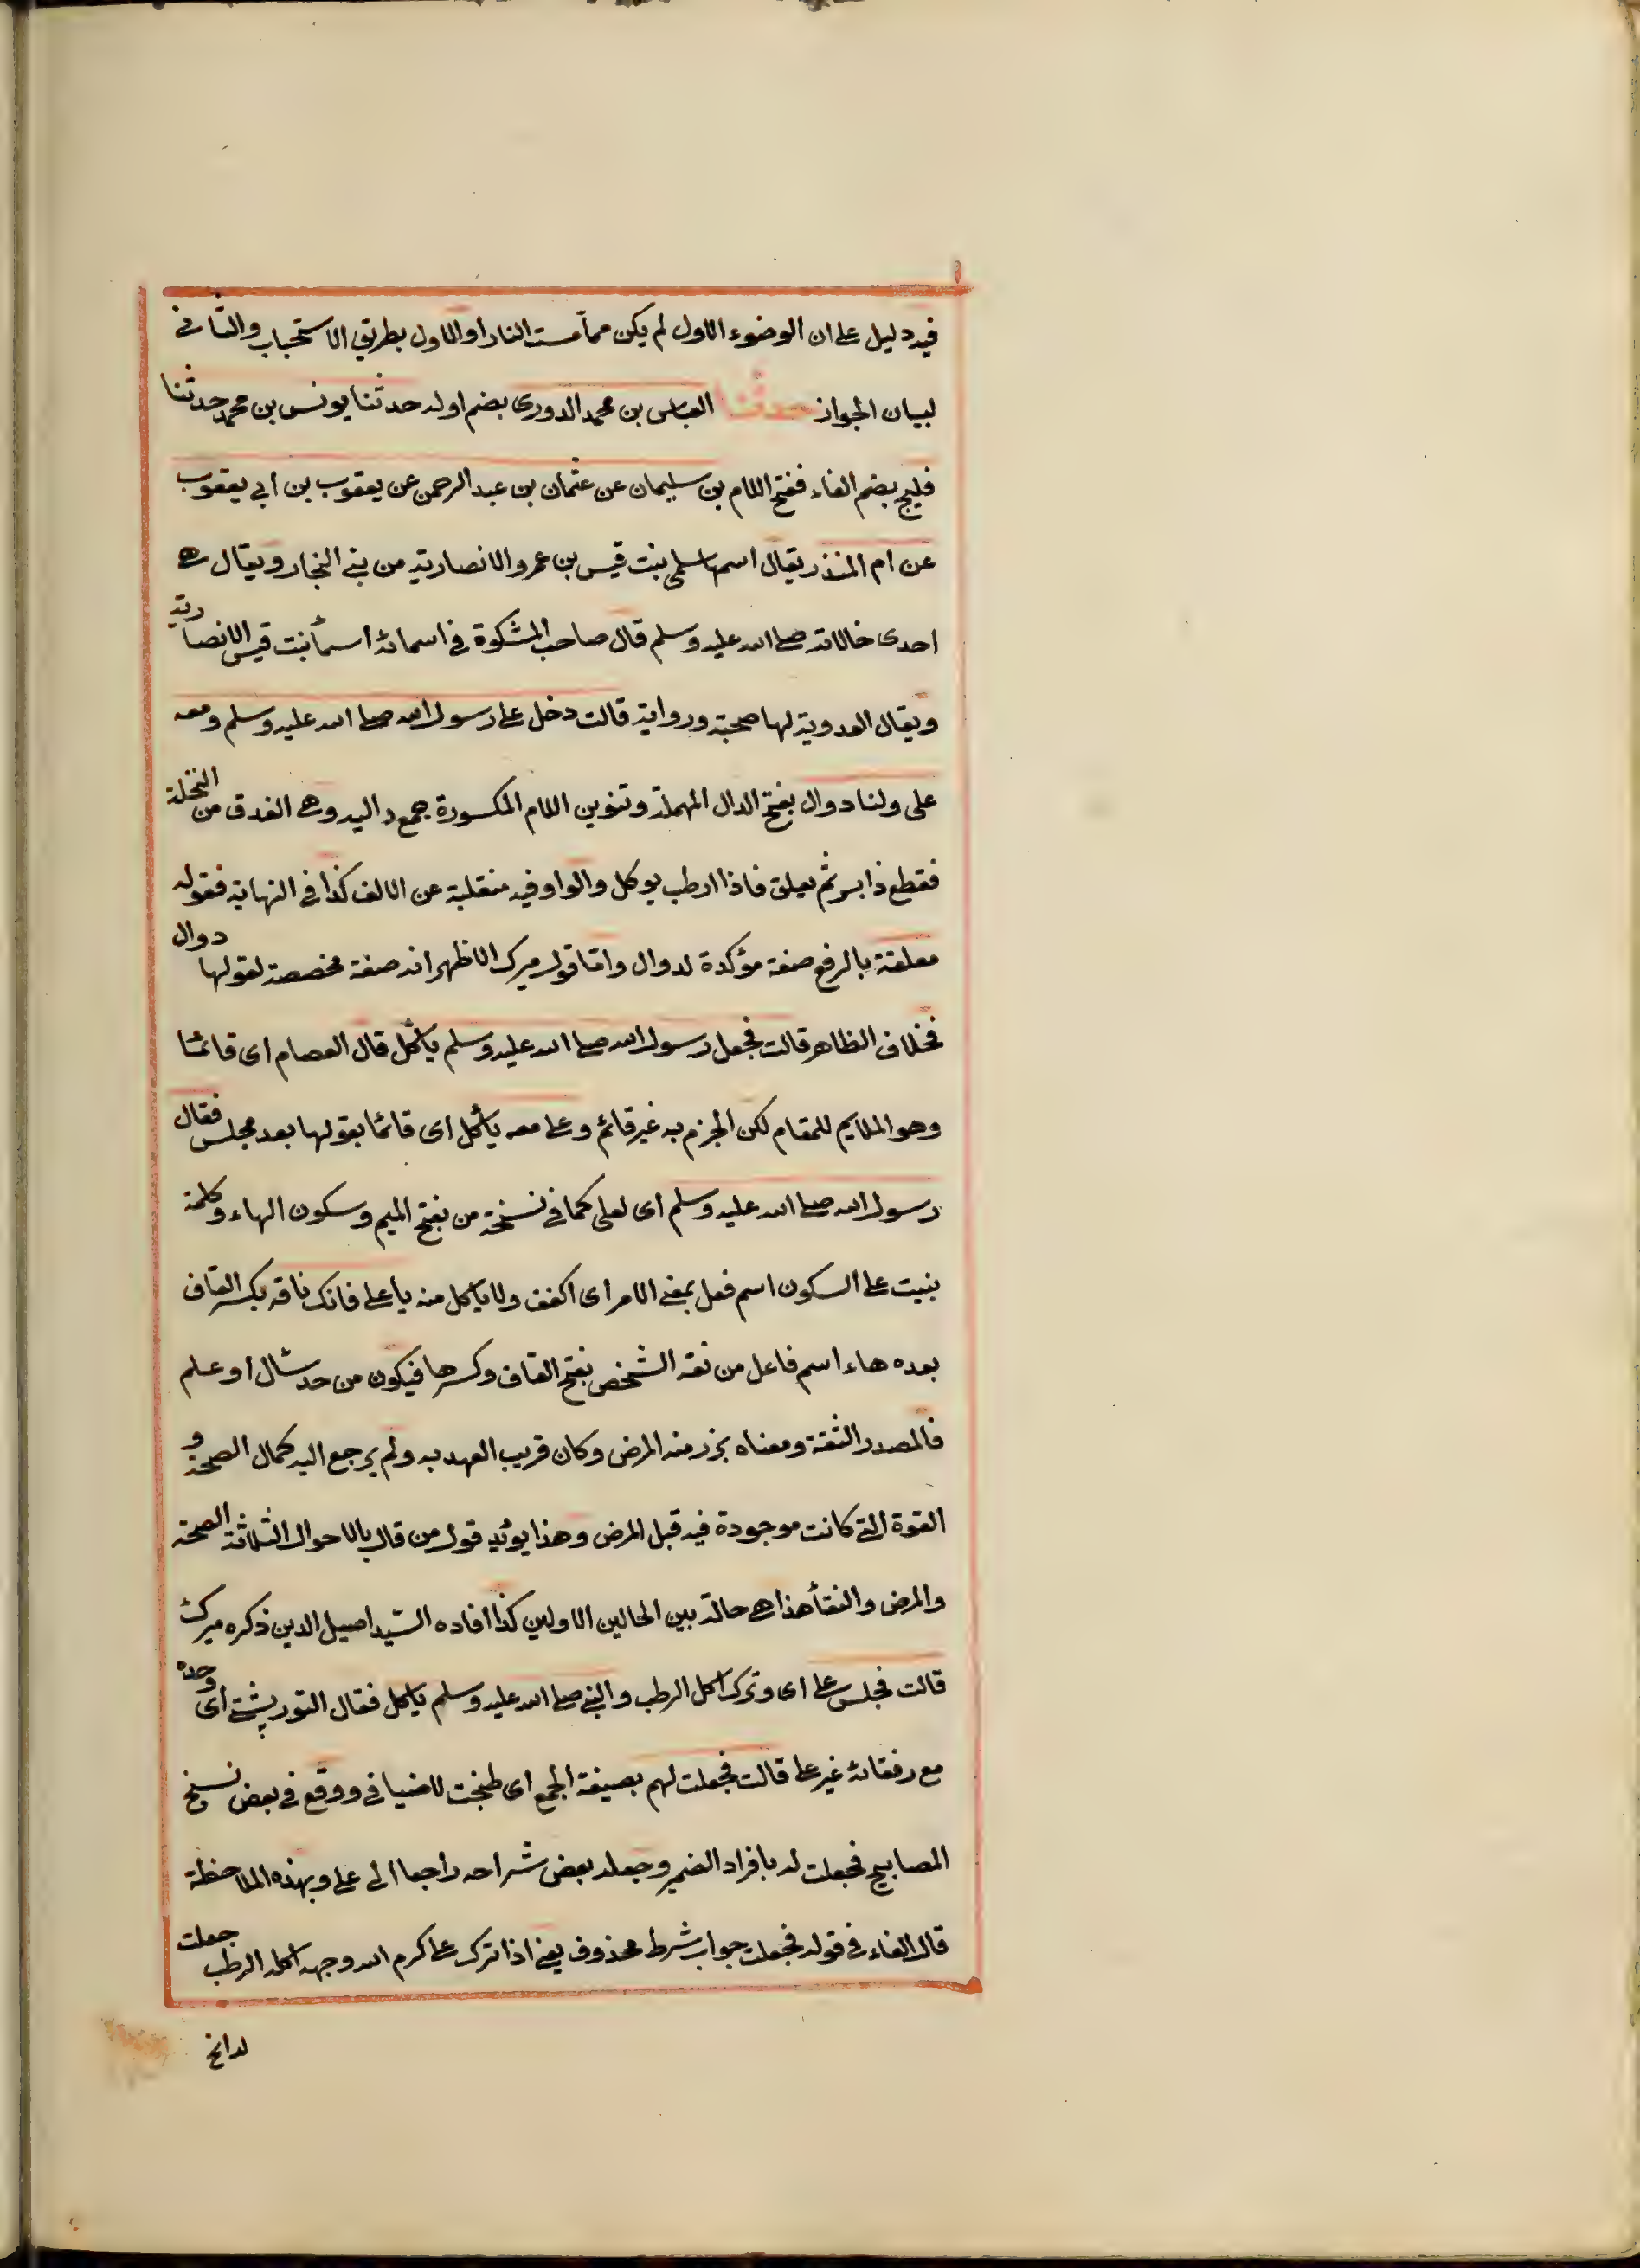 فيه دليل على ان الوضوء الاول لم يكن ممامست النار او الاول بطريق الاستحباب والثانى
لبيان الجواز حدثنا العباس بن محمد الدورى بضم اوله حدثنا يونس بن محمد حدثنا
فليح بضم الفاء ففتح اللام بن سليمان عن عثمان بن عبد الرحمن عن يعقوب بن ابي يعقوب
عن ام المنذر يقال اسمها سلمى بنت قيس بن عمرو الانصارية من بني النجار ويقال هى
احدى خالاته صلى الله عليه وسلم قال صاحب المشكوة في اسمائه اسمأ بنت قيس الانصارية
ويقال العدوية لها صحبة ورواية قالت دخل على رسول الله صلى الله عليه وسلم ومعه
على ولنا دوال بفتح الدال المهملة وتنوين اللام المكسورة جمع دالية وهى الغدق من النخلة
فقطع ذا بسر ثم يعلق فاذا ارطب يوكل والواو فيه منقلبة عن الالف كذا في النهاية فقوله
معلقة بالرفع صفة مؤكدة لدوال واما قول ميرك الاظهر انه صفة مخصصة لقولها دوال
فخلاف الظاهر قالت فجعل رسول الله صلى الله عليه وسلم يأكل قال العصام اى قائما
وهو الملايم للمقام لكن الجزم به غير قائم وعلى معه يأكل اى قائما بقولها بعد مجلس فقال
رسول الله صلى الله عليه وسلم اى لعلى كما في نسخة من بفتح الميم وسكون الهاء وكلمة
بنيت على السكون اسم فعل بمعنى الامر اى اكفف ولا يأكل منه يا على فانك ناقه بكسر القاف
بعده هاء اسم فاعل من نقه الشخص بفتح القاف وكسرها فيكون من حد سال او علم
فالمصدر النقة ومعناه برز منه المرض وكان قريب العهد به ولم يرجع اليه كمال الصحة و
القوة التى كانت موجودة فيه قبل المرض وهذا يوئد قول من قال بالاحوال الثلاثة الصحة
والمرض والنقأ هذا هى حالة بين الحالين الاولين كذا افاده السيد اصيل الدين ذكره ميرك
قالت فجلس على اى وترك اكل الرطب والنبى صلى الله عليه وسلم يأكل فقال التوربشتى اى وحده
مع رفقائه غير على قالت فجعلت لهم بصيغة الجمع اى طبخت للاضيافى ووقع في بعض نسخ
المصابيح فجعلت له بافراد الضمير وجعله بعض شراحه راجعا الى على وبهذه الملاحظة
قال الفاء في قوله فجعلت جواب شرط محذوف يعنى اذا ترك على كرم الله وجهه اكله الرطب جعلت
له الخ